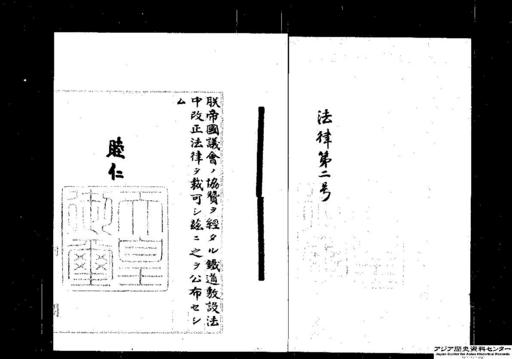 法律第二号
朕帝國議會ノ協贊ヲ經タル鐵道敷設法
中改正法律ヲ裁可シ玆ニ之ヲ公布セシ
ム
睦仁
天皇
御璽
アジア歴史資料センター
Japan Center for Asian Historical Records